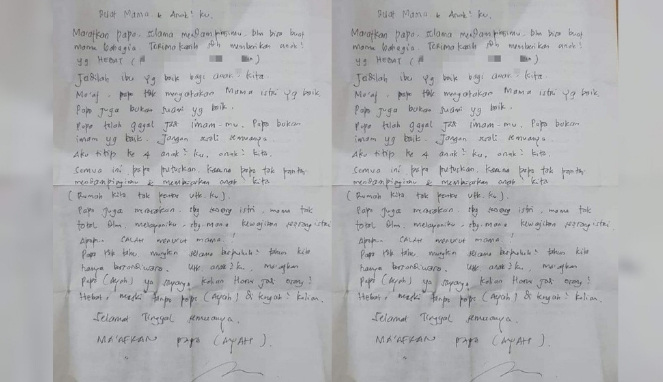 Buat Mama & Anak² ku.
Maafkan papa. Selama mendampingimu. Blm bisa buat
mama bahagia Terimakasih tlh memberikan anak²
yg HEBAT (
Jadilah ibu yg baik bagi anak² kita.
Maaf. papa tak mengatakan Mama istri yg baik.
Papa juga bukan suami yg baik.
Papa telah gagal jdi imam-mu. Papa bukan
imam yg baik. Jangan semuanya.
Aku titip ke 4 anak² ku, anak² kita
Semua ini papa putuskan. Karena papa tak pantas
mendampingimu & membesarkan anak² kita
(Rumah kita tak pantas utk. ku).
Papa juga merasakan sbg seorang istri, mama tak
total dlm melayaniku sbg mana kewajiban seorang istri
menurut mama!
Papa tak tahu mungkin selama berpuluh² tahun kita
hanya bersandiwara. Utk anak² ku, maafkan
Papa (Ayah) yg sayang, kalian Harus jdi orang²
Hebat. meski tanpa papa (ayah) & kalian.
Selamat Tinggal semuanya.
MAAFKAN papa (AYAH).